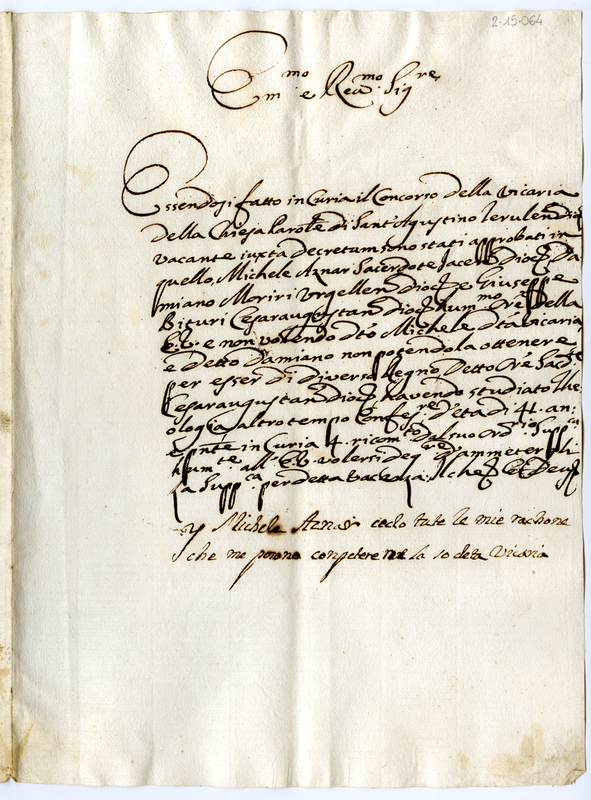 2-15-064
Em.mo e Rev.mo Sig.re
Essendosi fatto in Curia il Concorso della Vicaria
della Chiesa Parole di Sant'Agustino
vacante iuxta decretum sono stati approbati in
quello, Michele Aznar Sacerdote Dioc. Da
miano Moriri Urgellen Dioc. e Giuseppe
Bituri Cesaraugustan Dioc. hum.mo Ore della
E.V. e non volendo d.to Michele d.ta Vicaria
e detto Damiano non potendola ottenere
per esser di diverso Regno. Detto Ore Sacte
Cesaraugustan Dioc. havendo studiato the
ologia altro tempo Confes.re d'età di 41. an:
e pnte in Curia 4. ricom.to dal suo Ord.rio supp.ca
hum.te all' E.V. volersi deg.re d'ammetter
la Supp.ca per detta Vacenza. Il che Deus
Michele Aznar cedo tute le mie rachone
che me posono competere la so deta Vicaria